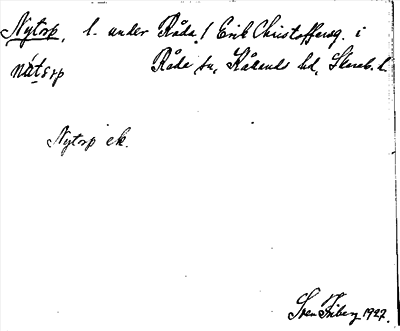 Nytorp, l. under Råda / Erik Christoffersg. i
nátorp Råda sn, Kållands hd, Skarab. l.
Nytorp ek.
Sven Friberg 1927.